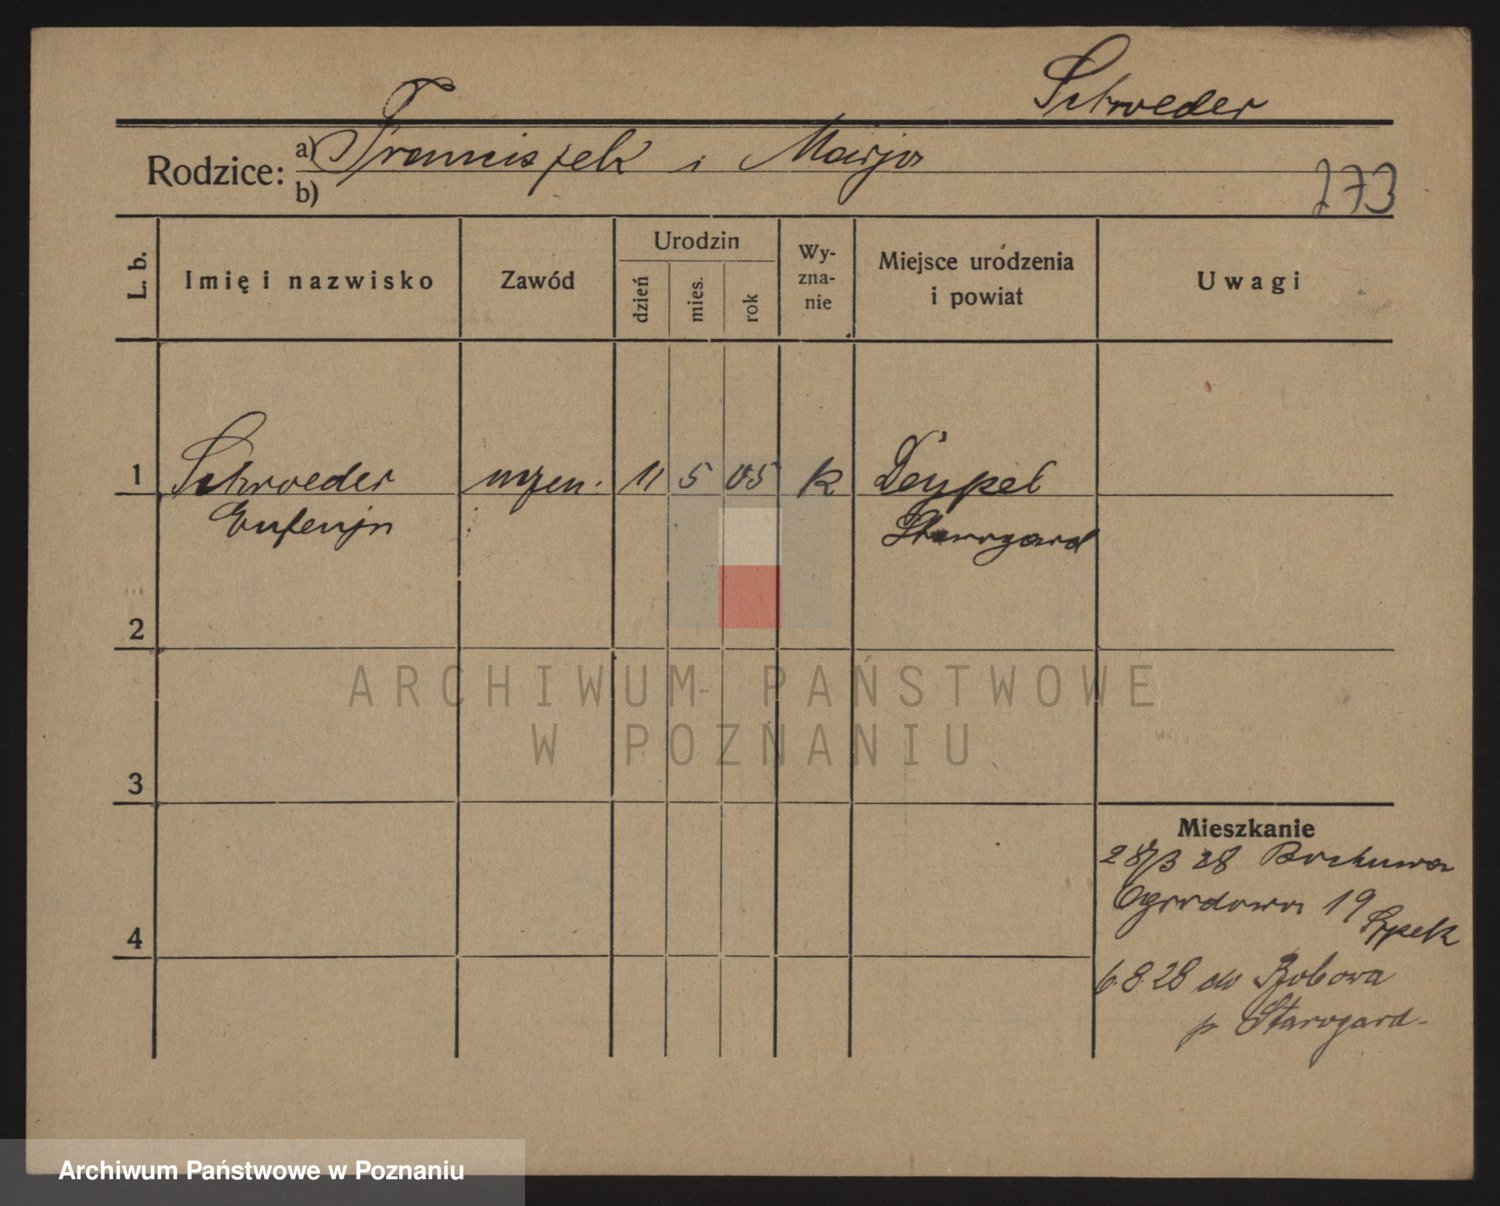 Schroeder
Rodzice: a) Franciszek i Marja
b)
273
L. b.
Imię i nazwisko
Zawód
Urodzin
dzień
mies.
rok
Wy-
zna-
nie
Miejsce urodzenia
i powiat
Uwagi
1
Schroeder
Eufenja
11 5 05 k
Starogard
2
ARCHIWUM PAŃSTWOWE
W POZNANIU
3
Mieszkanie
28/3 28
Ogrodowa 19
4
6.8.28 do Bobowa
p Starogard
Archiwum Państwowe w Poznaniu